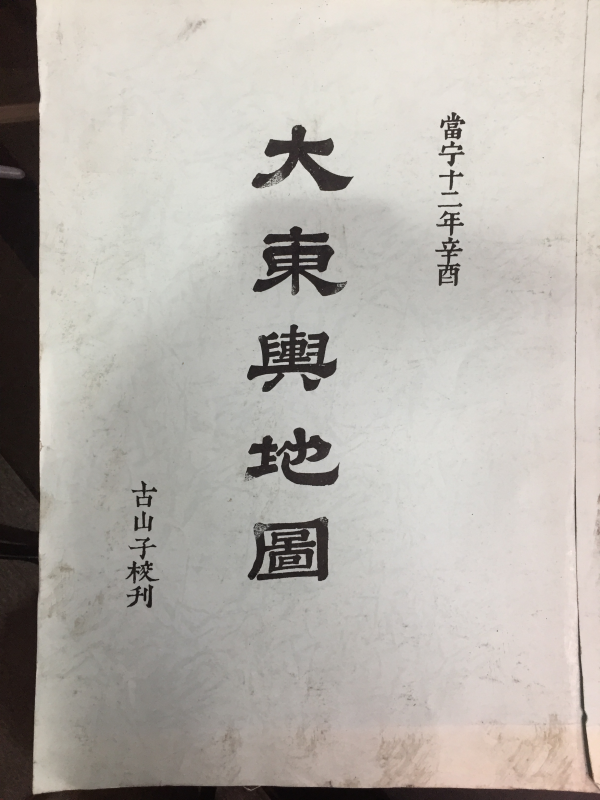 當宁十二年辛酉
大東輿地圖
古山子校刊